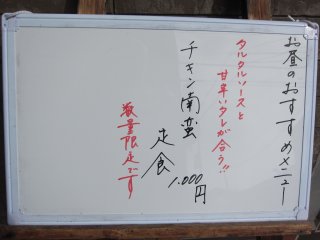 お昼のおすすめメニュー
タルタルソースと
甘辛いタレが合う!!
チキン南蛮
定食
1.000円
数量限定です